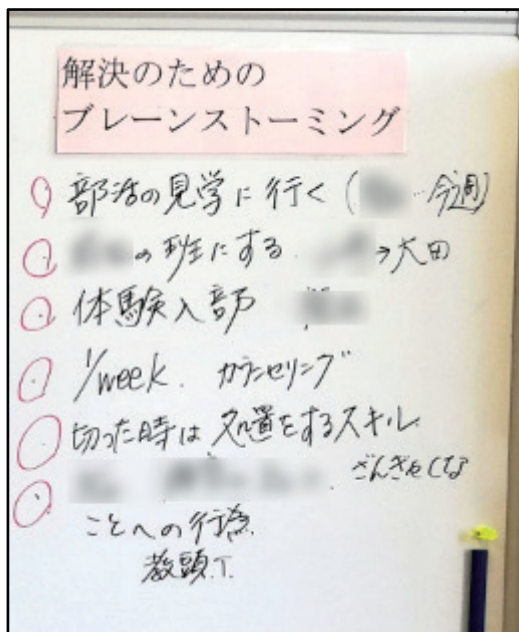 解決のための
ブレーンストーミング
部活の見学に行く( 今週)
の班にする →大田
体験入部
1/week. カウンセリング
切った時は処置をするスキル
ざんぎゃくな
ことへの行為
教頭.T.